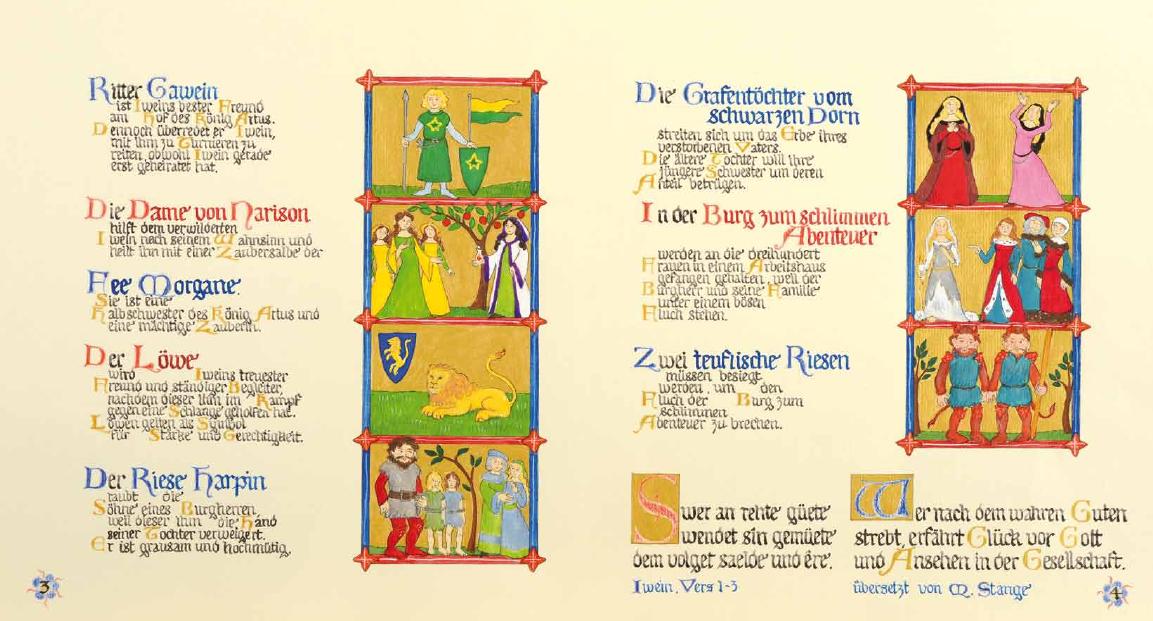 Ritter Gawein
ist Iweins bester Freund
am Hof des König Artus.
Dennoch überredet er Iwein,
mit ihm zu Turnieren zu
reiten, obwohl Iwein gerade
erst geheiratet hat.
Die Dame von Narison
hilft dem verwilderten
Iwein nach seinem Wahnsinn und
heilt ihn mit einer Zaubersalbe der
Fee Morgane.
Sie ist eine
Halbschwester des König Artus und
eine mächtige Zauberin.
Der Löwe
wird Iweins treuester
Freund und ständiger Begleiter
nachdem dieser ihm im Kampf
gegen eine Schlange geholfen hat.
Löwen gelten als Symbol
für Stärke und Gerechtigkeit.
Der Riese Harpin
raubt die
Söhne eines Burgherren,
weil dieser ihm die Hand
seiner Tochter verweigert.
Er ist grausam und hochmütig.
3
Die Grafentöchter vom
schwarzen Dorn
streiten sich um das Erbe ihres
verstorbenen Vaters.
Die ältere Tochter will ihre
jüngere Schwester um deren
Anteil betrügen.
In der Burg zum schlimmen
Abenteuer
werden an die dreihundert
Frauen in einem Arbeitshaus
gefangen gehalten, weil der
Burgherr und seine Familie
unter einem bösen
Fluch stehen.
Zwei teuflische Riesen
müssen besiegt
werden, um den
Fluch der Burg zum
schlimmen
Abenteuer zu brechen.
Swer an rehte güete
wendet sin gemüete
dem volget saelde und êre.
Iwein, Vers 1-3
Wer nach dem wahren Guten
strebt, erfährt Glück vor Gott
und Ansehen in der Gesellschaft.
übersetzt von M. Stange
4